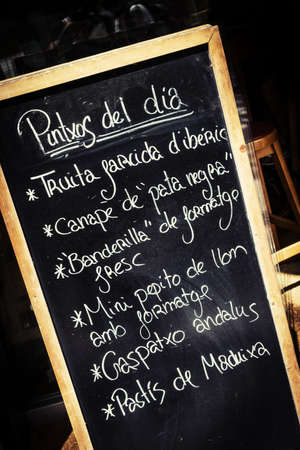 Pintxos del día
*Truita farcida d'iberic
*Canapè de "pata negra"
*"Banderilla" de formatge
fresc
*Mini-pepito de llom
amb formatge
*Gaspatxo andalus
*Pastís de Maduixa